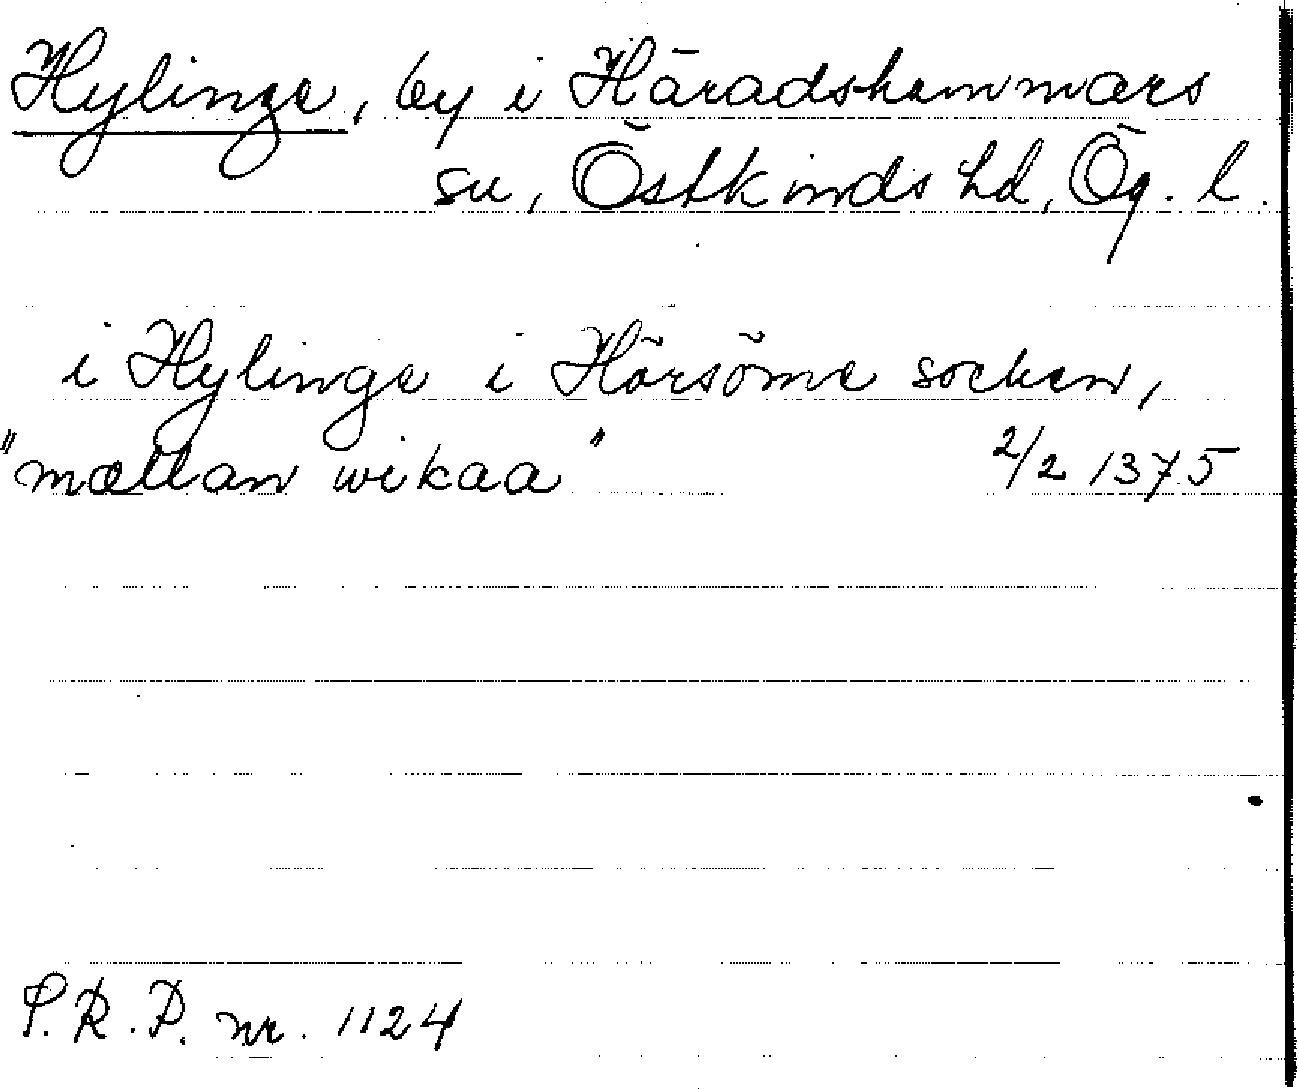 Hylinge, by i Häradshammars
sn, Östkinds hd, Ög. l.
i Hylinge i Hörsöme socken,
"mællan wikaa" 2/2 1375
S.R.P. nr. 1124